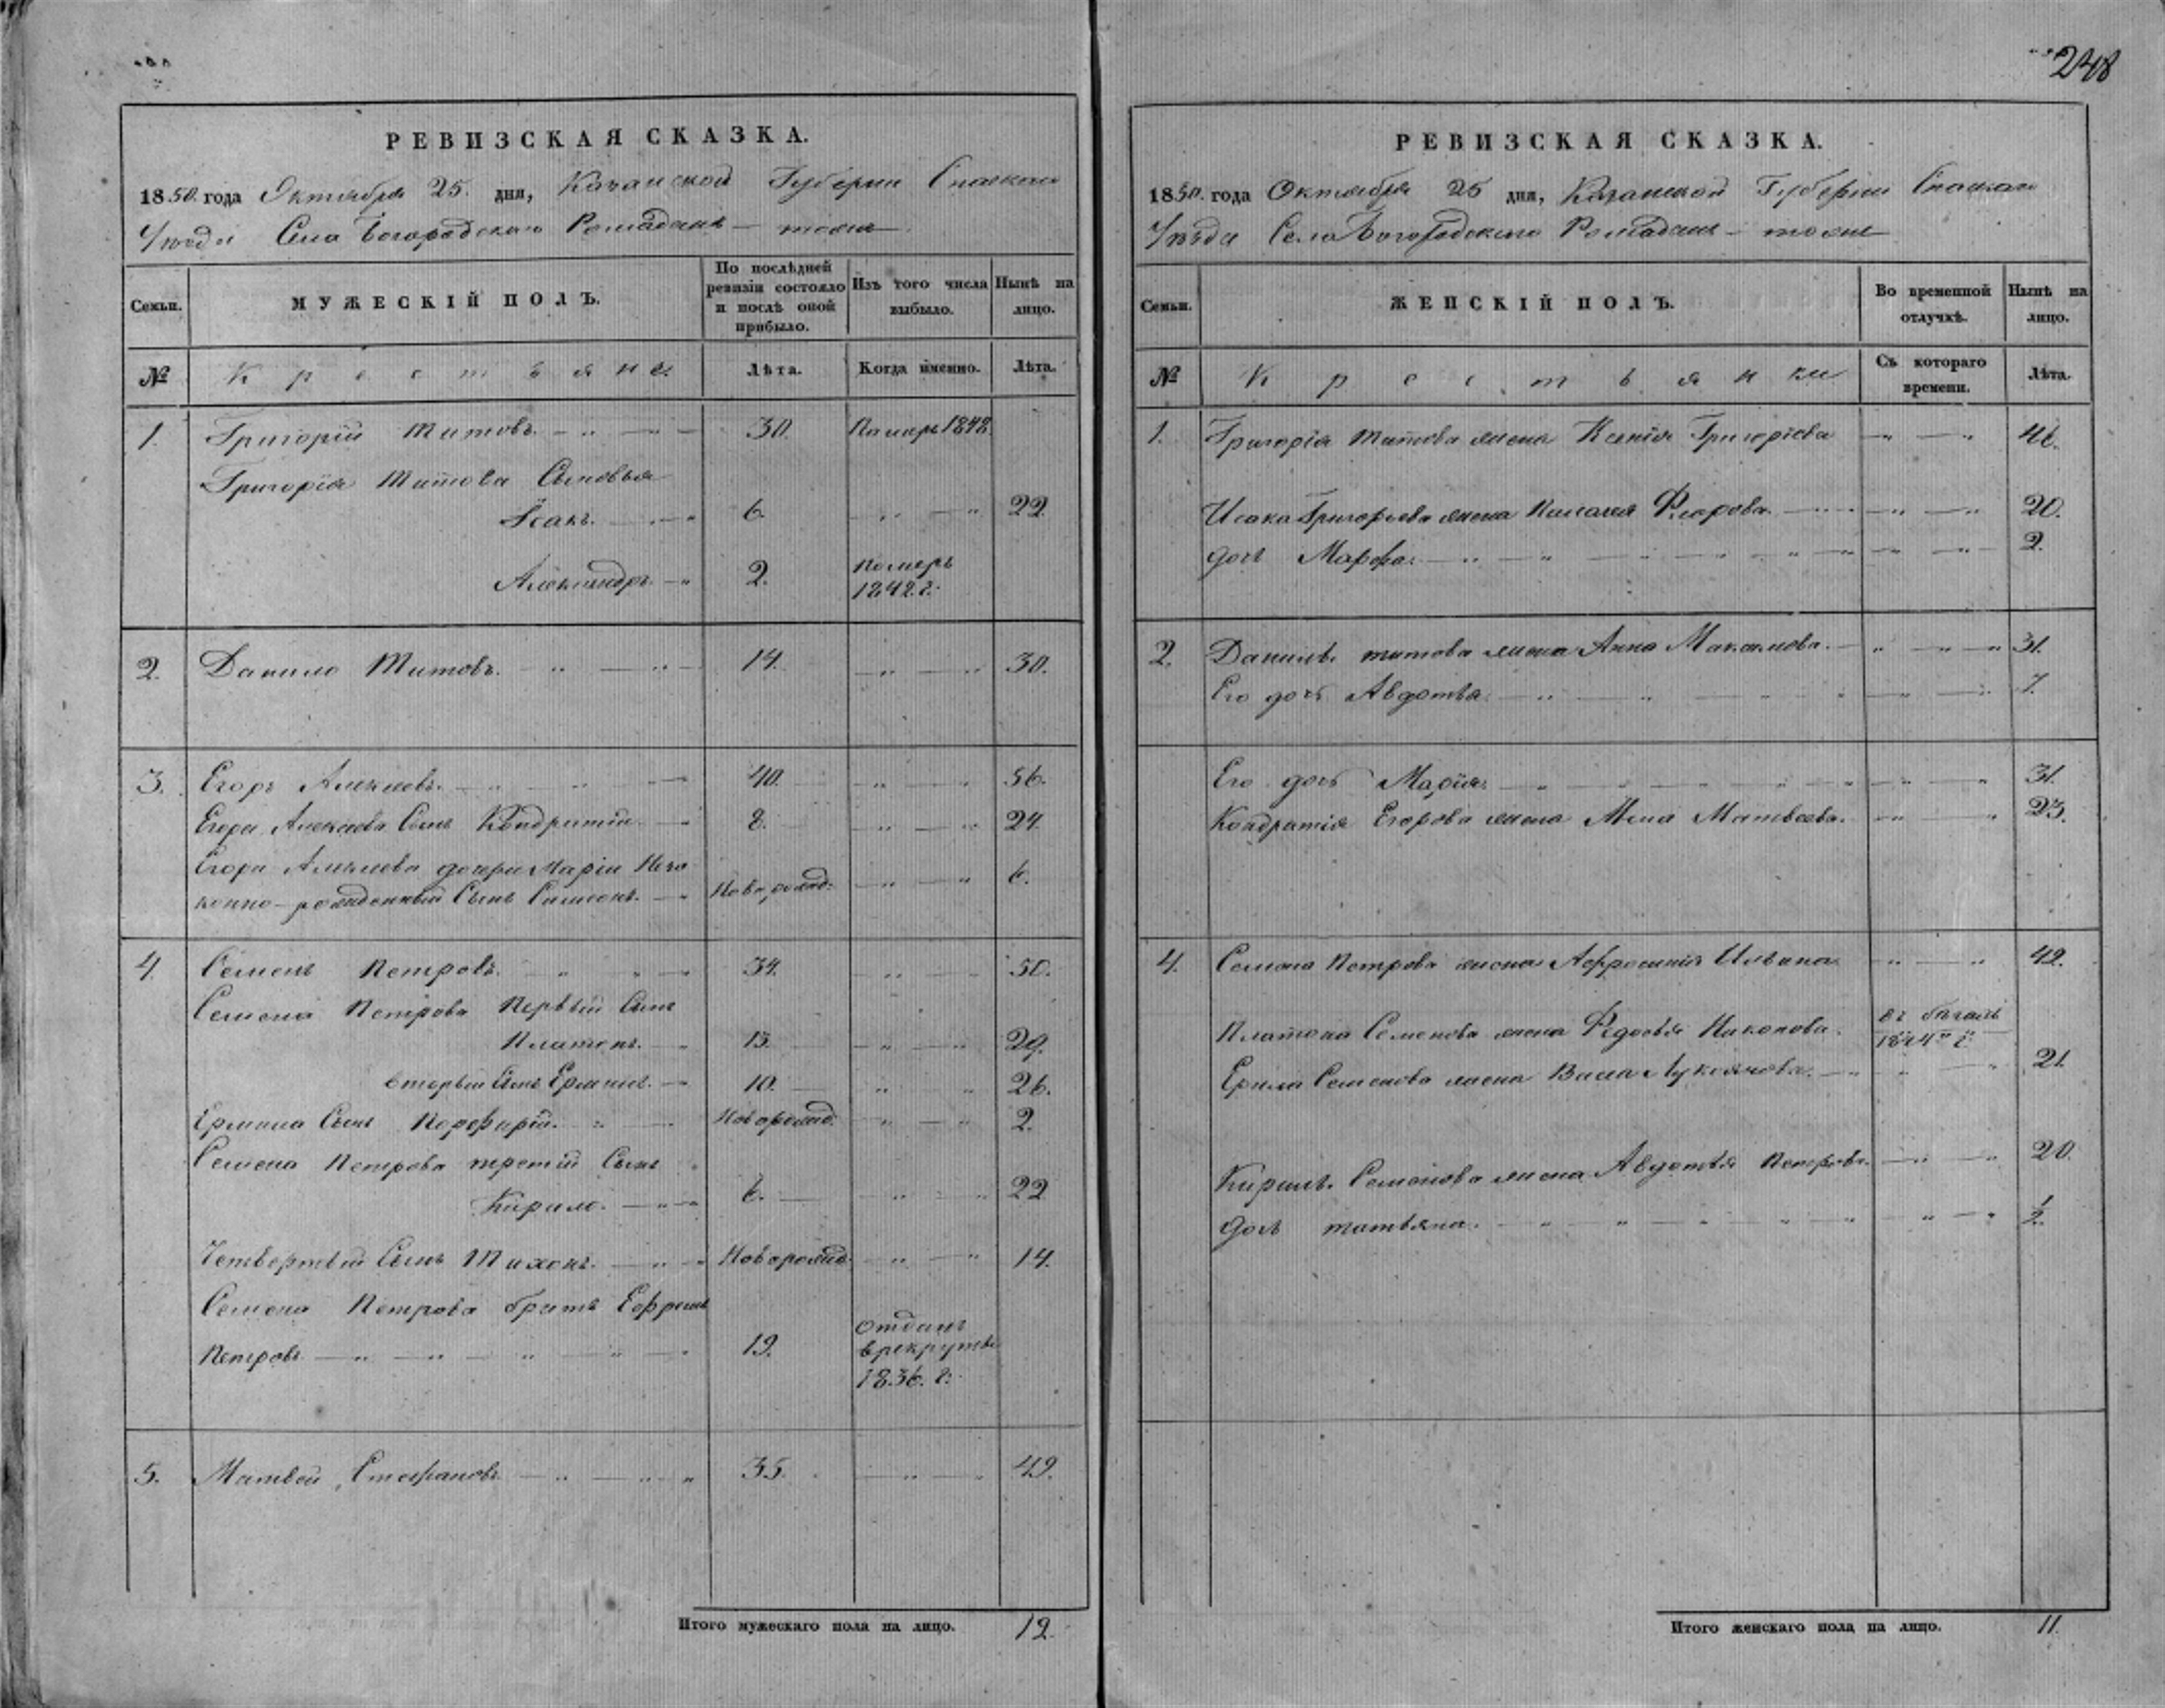 248
РЕВИЗСКАЯ СКАЗКА.
1850. года Октября 25. дня, Казанской Губерніи Спаскаго
Уѣзда Села Богородскаго Ромадань тожъ
Семьи.
МУЖЕСКІЙ ПОЛЪ.
По послѣдней ревизіи состояло и послѣ оной прибыло.
Изъ того числа выбыло.
Нынѣ на лицо.
№
Крестьяне
Лѣта.
Когда именно.
Лѣта.
1. Григорій Титовъ. 30. Померъ 1848
Григорія Титова Сыновья
Исакъ. 6. 22.
Александръ 2. померъ 1842 г.
2. Данило Титовъ. 14. 30.
3. Егоръ Алексѣевъ. 40. 56.
Егора Алексѣева Сынъ Кондратій 8. 24.
Егора Алексѣева дочери Маріи Неза
конно-рожденный Сынъ Симеонъ. Новорожд: 6.
4. Семенъ Петровъ. 34. 50.
Семена Петрова Первый Сынъ
Платонъ. 13. 29.
вторый Сынъ Ермилъ. 10. 26.
Ермила Сынъ Порфирій. Новорожд. 2.
Семена Петрова третій Сынъ
Кирило. 6. 22
Четвертый Сынъ Тихонъ. Новорожд. 14.
Семена Петрова братъ Ефремъ
Петровъ 19. Отданъ в рекруты 1836. г:
5. Матвей Стефановъ 35. 49.
Итого мужескаго пола на лицо. 12.
РЕВИЗСКАЯ СКАЗКА.
1850. года Октября 25 дня, Казанской Губерніи Спаскаго
Уѣзда Села Богородскаго Ромадань - тожъ
Семьи.
ЖЕНСКІЙ ПОЛЪ.
Во временной отлучкѣ.
Нынѣ на лицо.
№
Крестьянки
Съ котораго времени.
Лѣта.
1. Григорія Титова жена Ксенія Григорьева 46.
Исака Григорьева жена Пелагея Фларова 20.
дочь Марфа. 2.
2. Данилы титова жена Анна Максимова. 31.
Его дочь Авдотья 7.
Его дочь Марія 31.
Кондратія Егорова жена Матвѣева. 23.
4. Семена Петрова жена Афросинія Ильина 49.
Платона Семенова жена Федосья Никонова. въ бѣгахъ 1844 г
Ермила Семенова жена Васса Лукоянова. 21.
Кирилы Семенова жена Авдотья Петрова. 20.
дочь татьяна. 1/2.
Итого женскаго пола на лицо. 11.